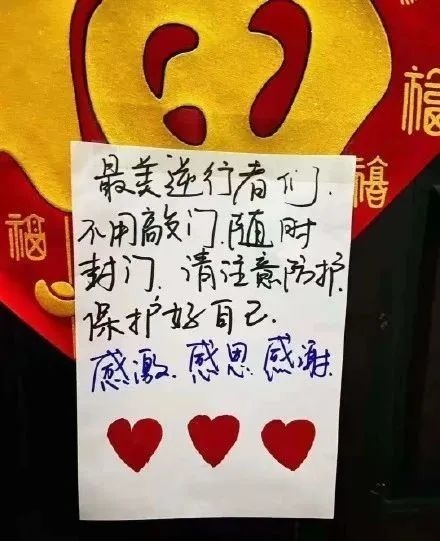 福
福
禧
最美逆行者们.
不用敲门.随时
封门.请注意防护.
保护好自己.
感激.感恩.感谢.